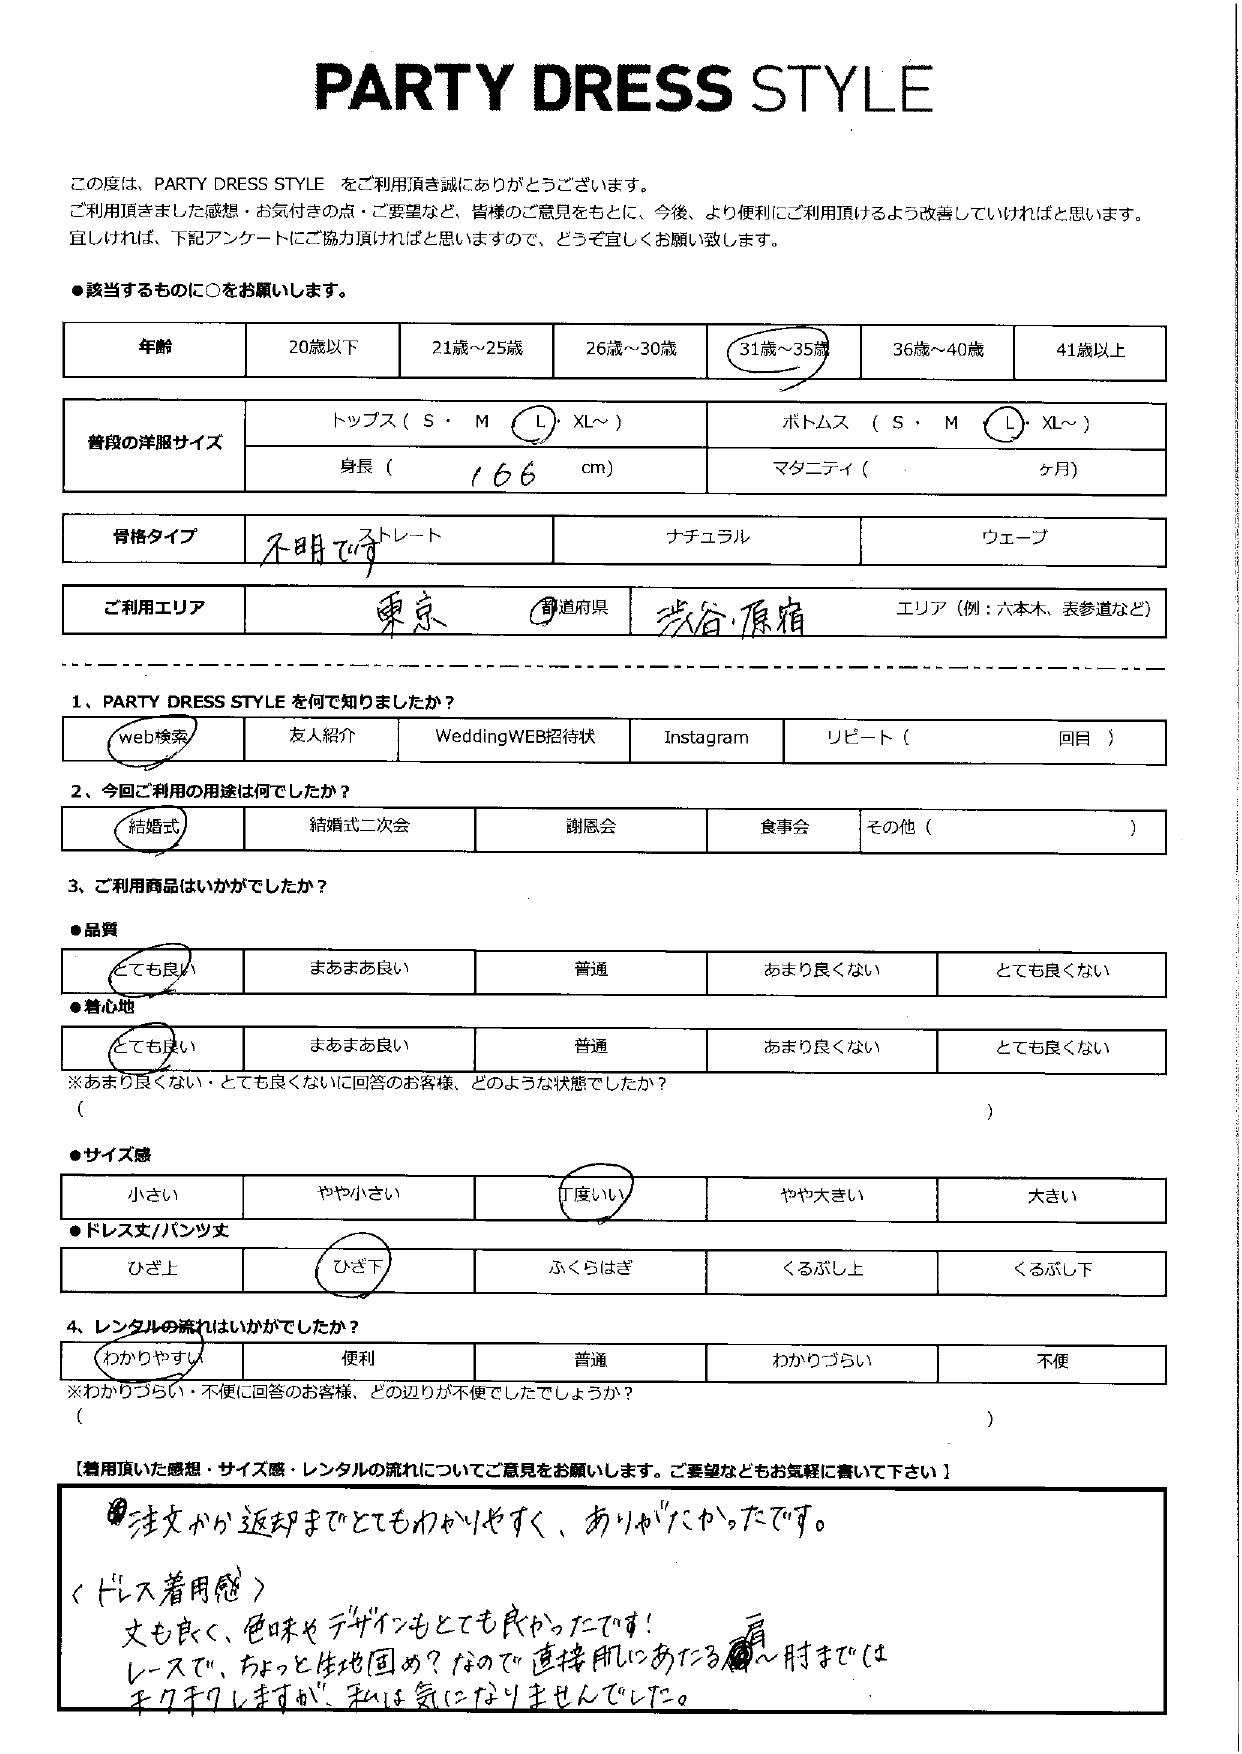 PARTY DRESS STYLE
この度は、PARTY DRESS STYLE をご利用頂き誠にありがとうございます。
ご利用頂きました感想・お気付きの点・ご要望など、皆様のご意見をもとに、今後、より便利にご利用頂けるよう改善していければと思います。
宜しければ、下記アンケートにご協力頂ければと思いますので、どうぞ宜しくお願い致します。
●該当するものに○をお願いします。
年齢 20歳以下 21歳～25歳 26歳～30歳 31歳～35歳 36歳～40歳 41歳以上
普段の洋服サイズ トップス ( S ・ M L ・ XL～ ) ボトムス ( S ・ M ・ L ・ XL～ )
身長 ( 166 cm) マタニティ ( ヶ月)
骨格タイプ 不明です ストレート ナチュラル ウェーブ
ご利用エリア 東京 都道府県 渋谷・原宿 エリア（例：六本木、表参道など）
1、PARTY DRESS STYLE を何で知りましたか？
web検索 友人紹介 WeddingWEB招待状 Instagram リピート ( 回目 )
2、今回ご利用の用途は何でしたか？
結婚式 結婚式二次会 謝恩会 食事会 その他 ( )
3、ご利用商品はいかがでしたか？
●品質
とても良い まあまあ良い 普通 あまり良くない とても良くない
●着心地
とても良い まあまあ良い 普通 あまり良くない とても良くない
※あまり良くない・とても良くないに回答のお客様、どのような状態でしたか？
( )
●サイズ感
小さい やや小さい 丁度いい やや大きい 大きい
●ドレス丈/パンツ丈
ひざ上 ひざ下 ふくらはぎ くるぶし上 くるぶし下
4、レンタルの流れはいかがでしたか？
わかりやすい 便利 普通 わかりづらい 不便
※わかりづらい・不便に回答のお客様、どの辺りが不便でしたでしょうか？
( )
【着用頂いた感想・サイズ感・レンタルの流れについてご意見をお願いします。ご要望などもお気軽に書いて下さい】
注文から返却までとてもわかりやすく、ありがたかったです。
〈ドレス着用感〉
丈も良く、色味やデザインもとても良かったです！
レースで、ちょっと生地固め？なので直接肌にあたる肩～肘までは
チクチクしますが、私は気になりませんでした。